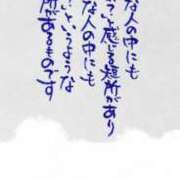 な人の中にも
っいと感じる短所があり
な人の中にも
いいというような
所があるものです